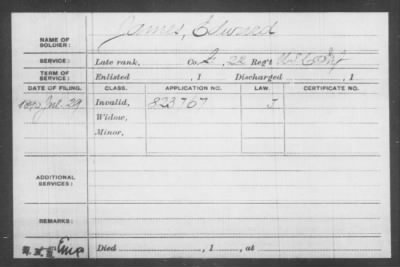 NAME OF SOLDIER: James, Edward
SERVICE: Late rank, Co. 22 Reg't
TERM OF SERVICE: Enlisted , 1 Discharged , 1
DATE OF FILING. CLASS. APPLICATION NO. LAW. CERTIFICATE NO.
29 Invalid, 823707 J
Widow,
Minor,
ADDITIONAL SERVICES:
REMARKS:
Died , 1 , at